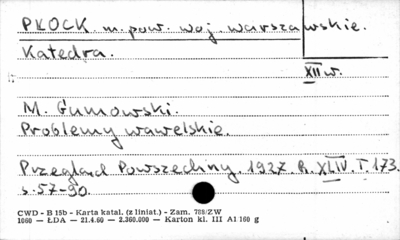 PŁOCK m. pow. woj. warszawskie.
Katedra.
XII w.
M. Gumowski.
Problemy wawelskie.
Przegląd Powszechny. 1927. R. XLIV. T. 173.
s. 57-90.
CWD - B 15b - Karta katal. (z liniat.) - Zam. 788/ZW
1060 — ŁDA — 21.4.60 — 2.360.000 — Karton kl. III A1 160 g